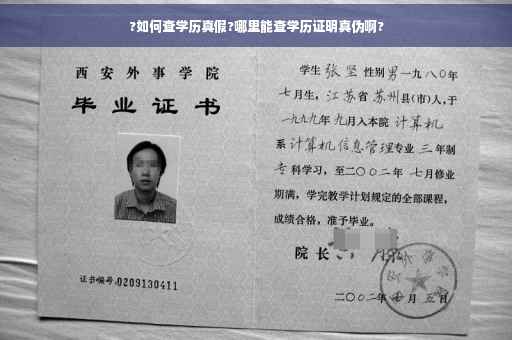 ?如何查学历真假?哪里能查学历证明真伪啊?
西安外事学院
毕业证书
证书编号:0209130411
学生 张坚 性别 男 一九八0年
七月生,江苏省 苏州县(市)人,于
一九九九年九月入本院 计算机
系 计算机信息管理专业 三年制
专科学习,至二〇〇二年 七月修业
期满,学完教学计划规定的全部课程,
成绩合格,准予毕业。
院长
二〇〇二年 月五日